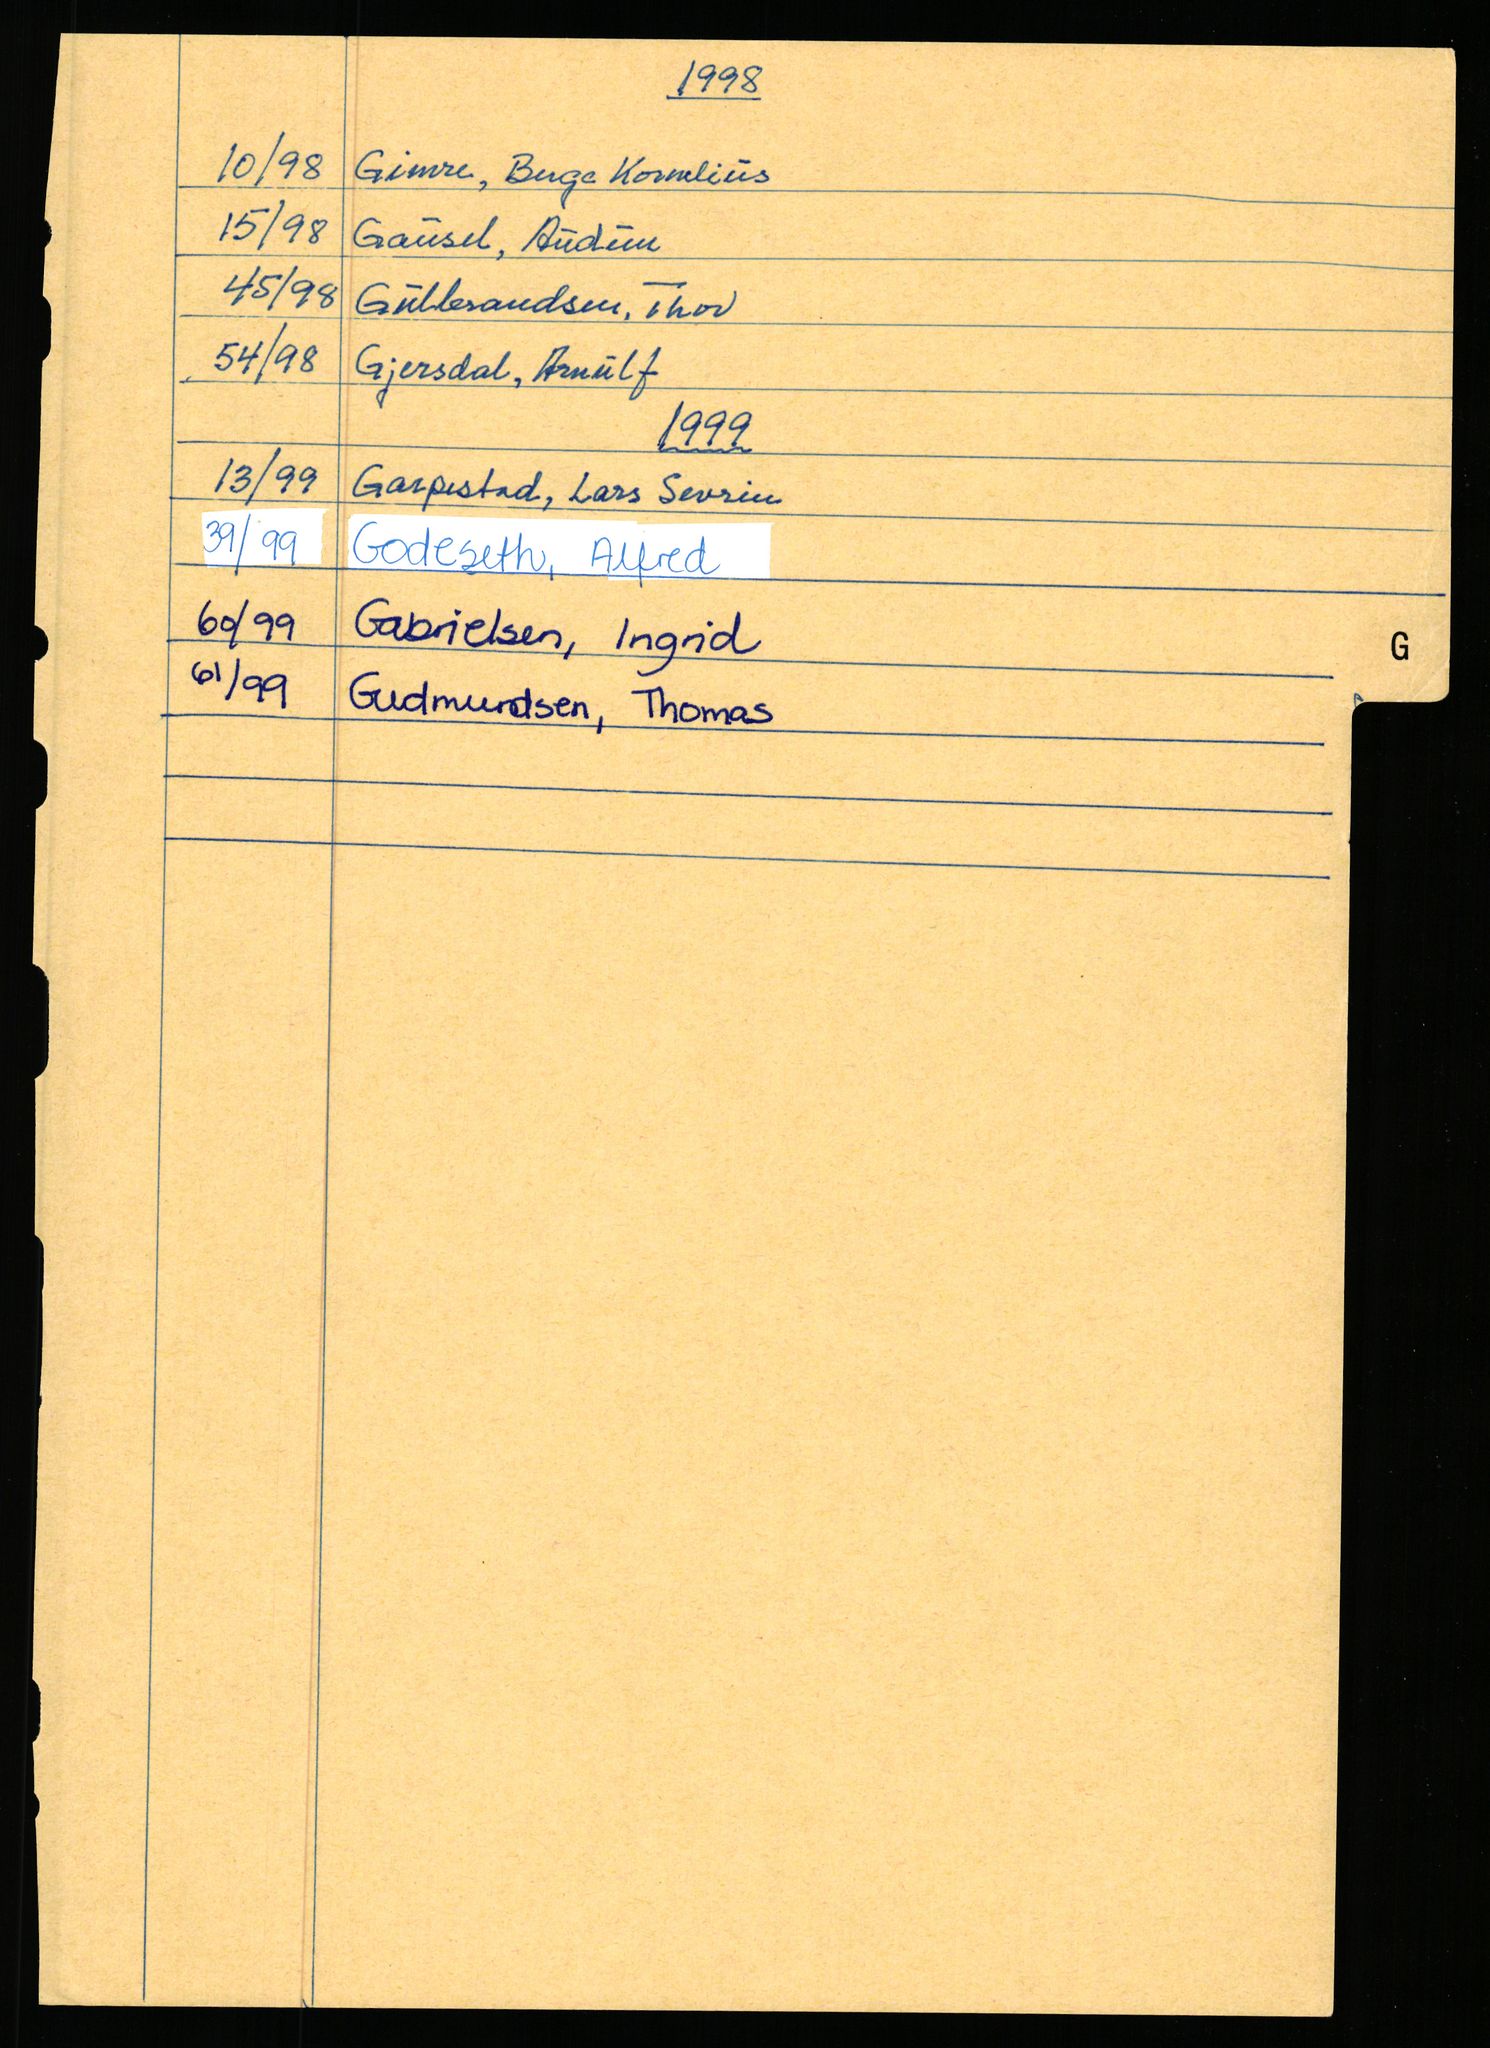 1998
10/98 Gimre, Berge Kornelius
15/98 Gaūsel, Aūdūn
45/98 Gūlbrandsen, Thor
54/98 Gjersdal, Arnūlf
1999
13/99 Garpestad, Lars Sevrin
39/99 Godeseth, Alfred
60/99 Gabrielsen, Ingrid
G
61/99 Gudmundsen, Thomas